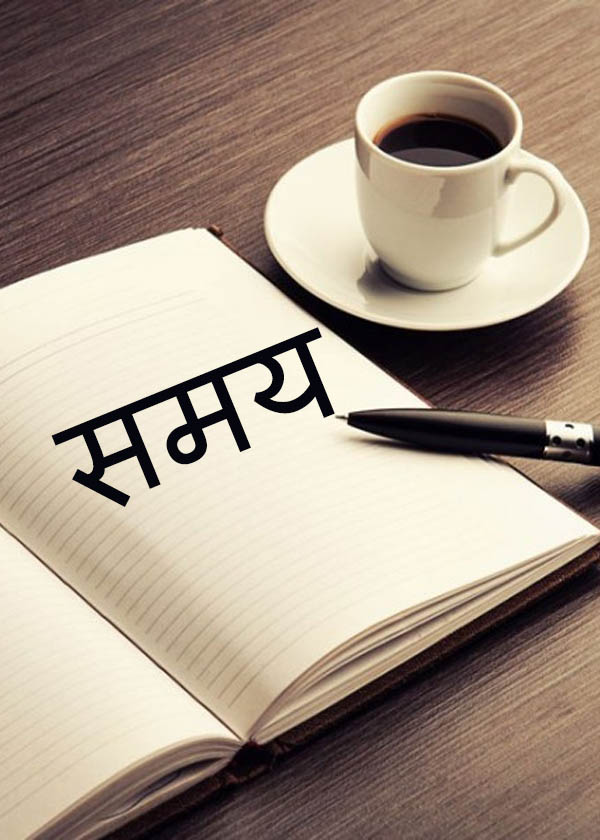 समय